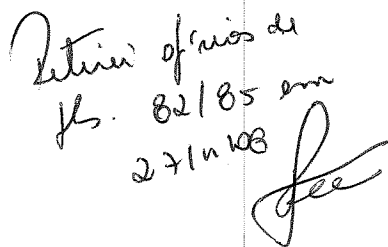 Retirei ofícios de
fls. 82/85 em
27/11/08